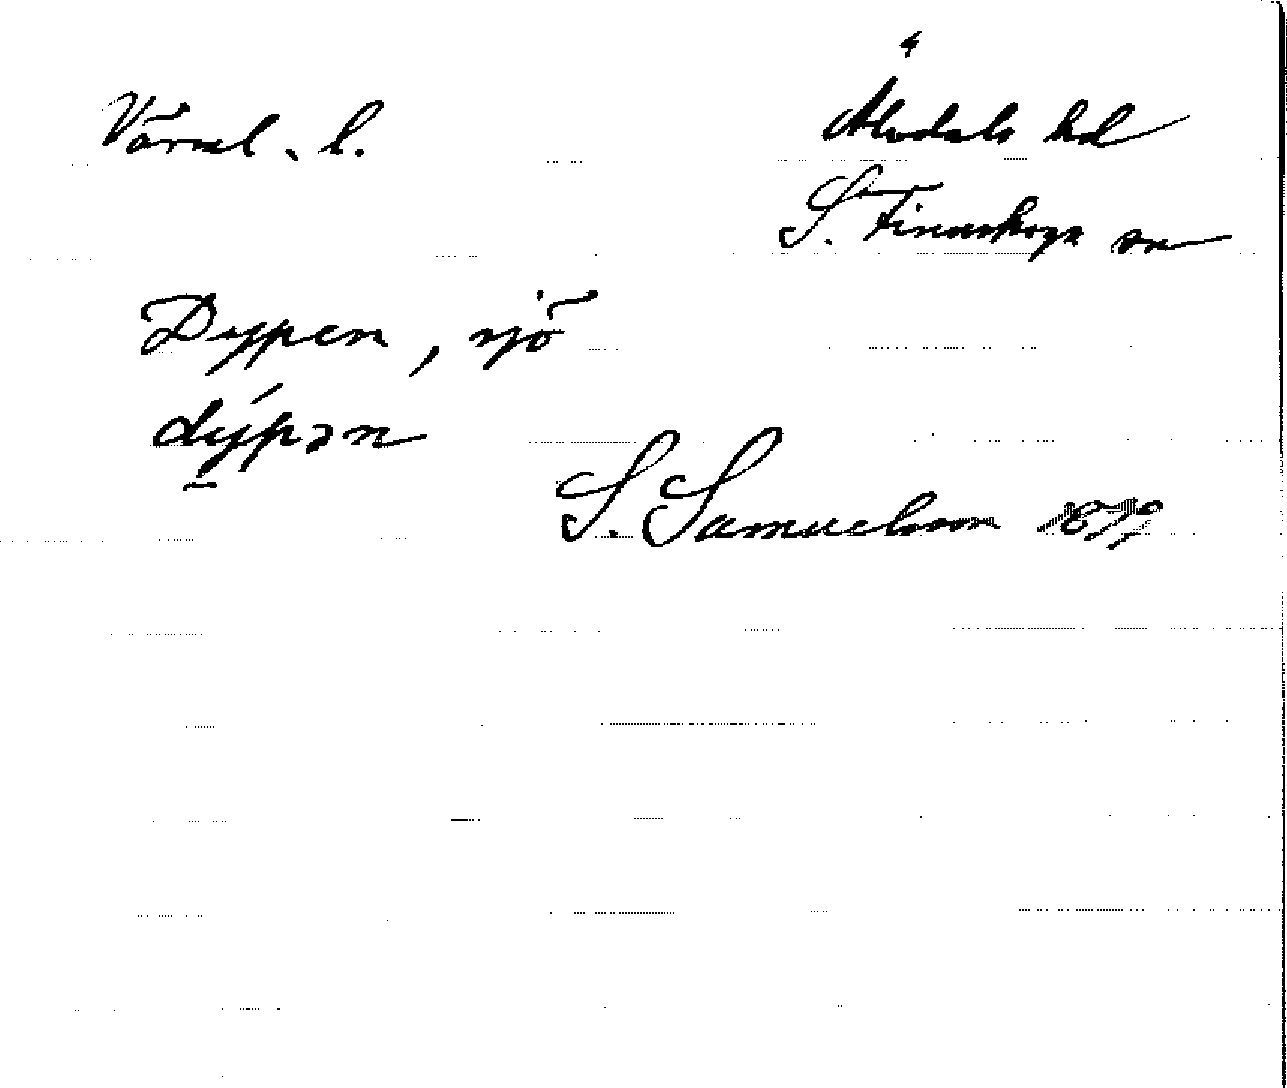 4
Värml. l.
Älvdals hd
S. Finnskoga sn
Dyppen, sjö
dýpən
S. Samuelsson 1879